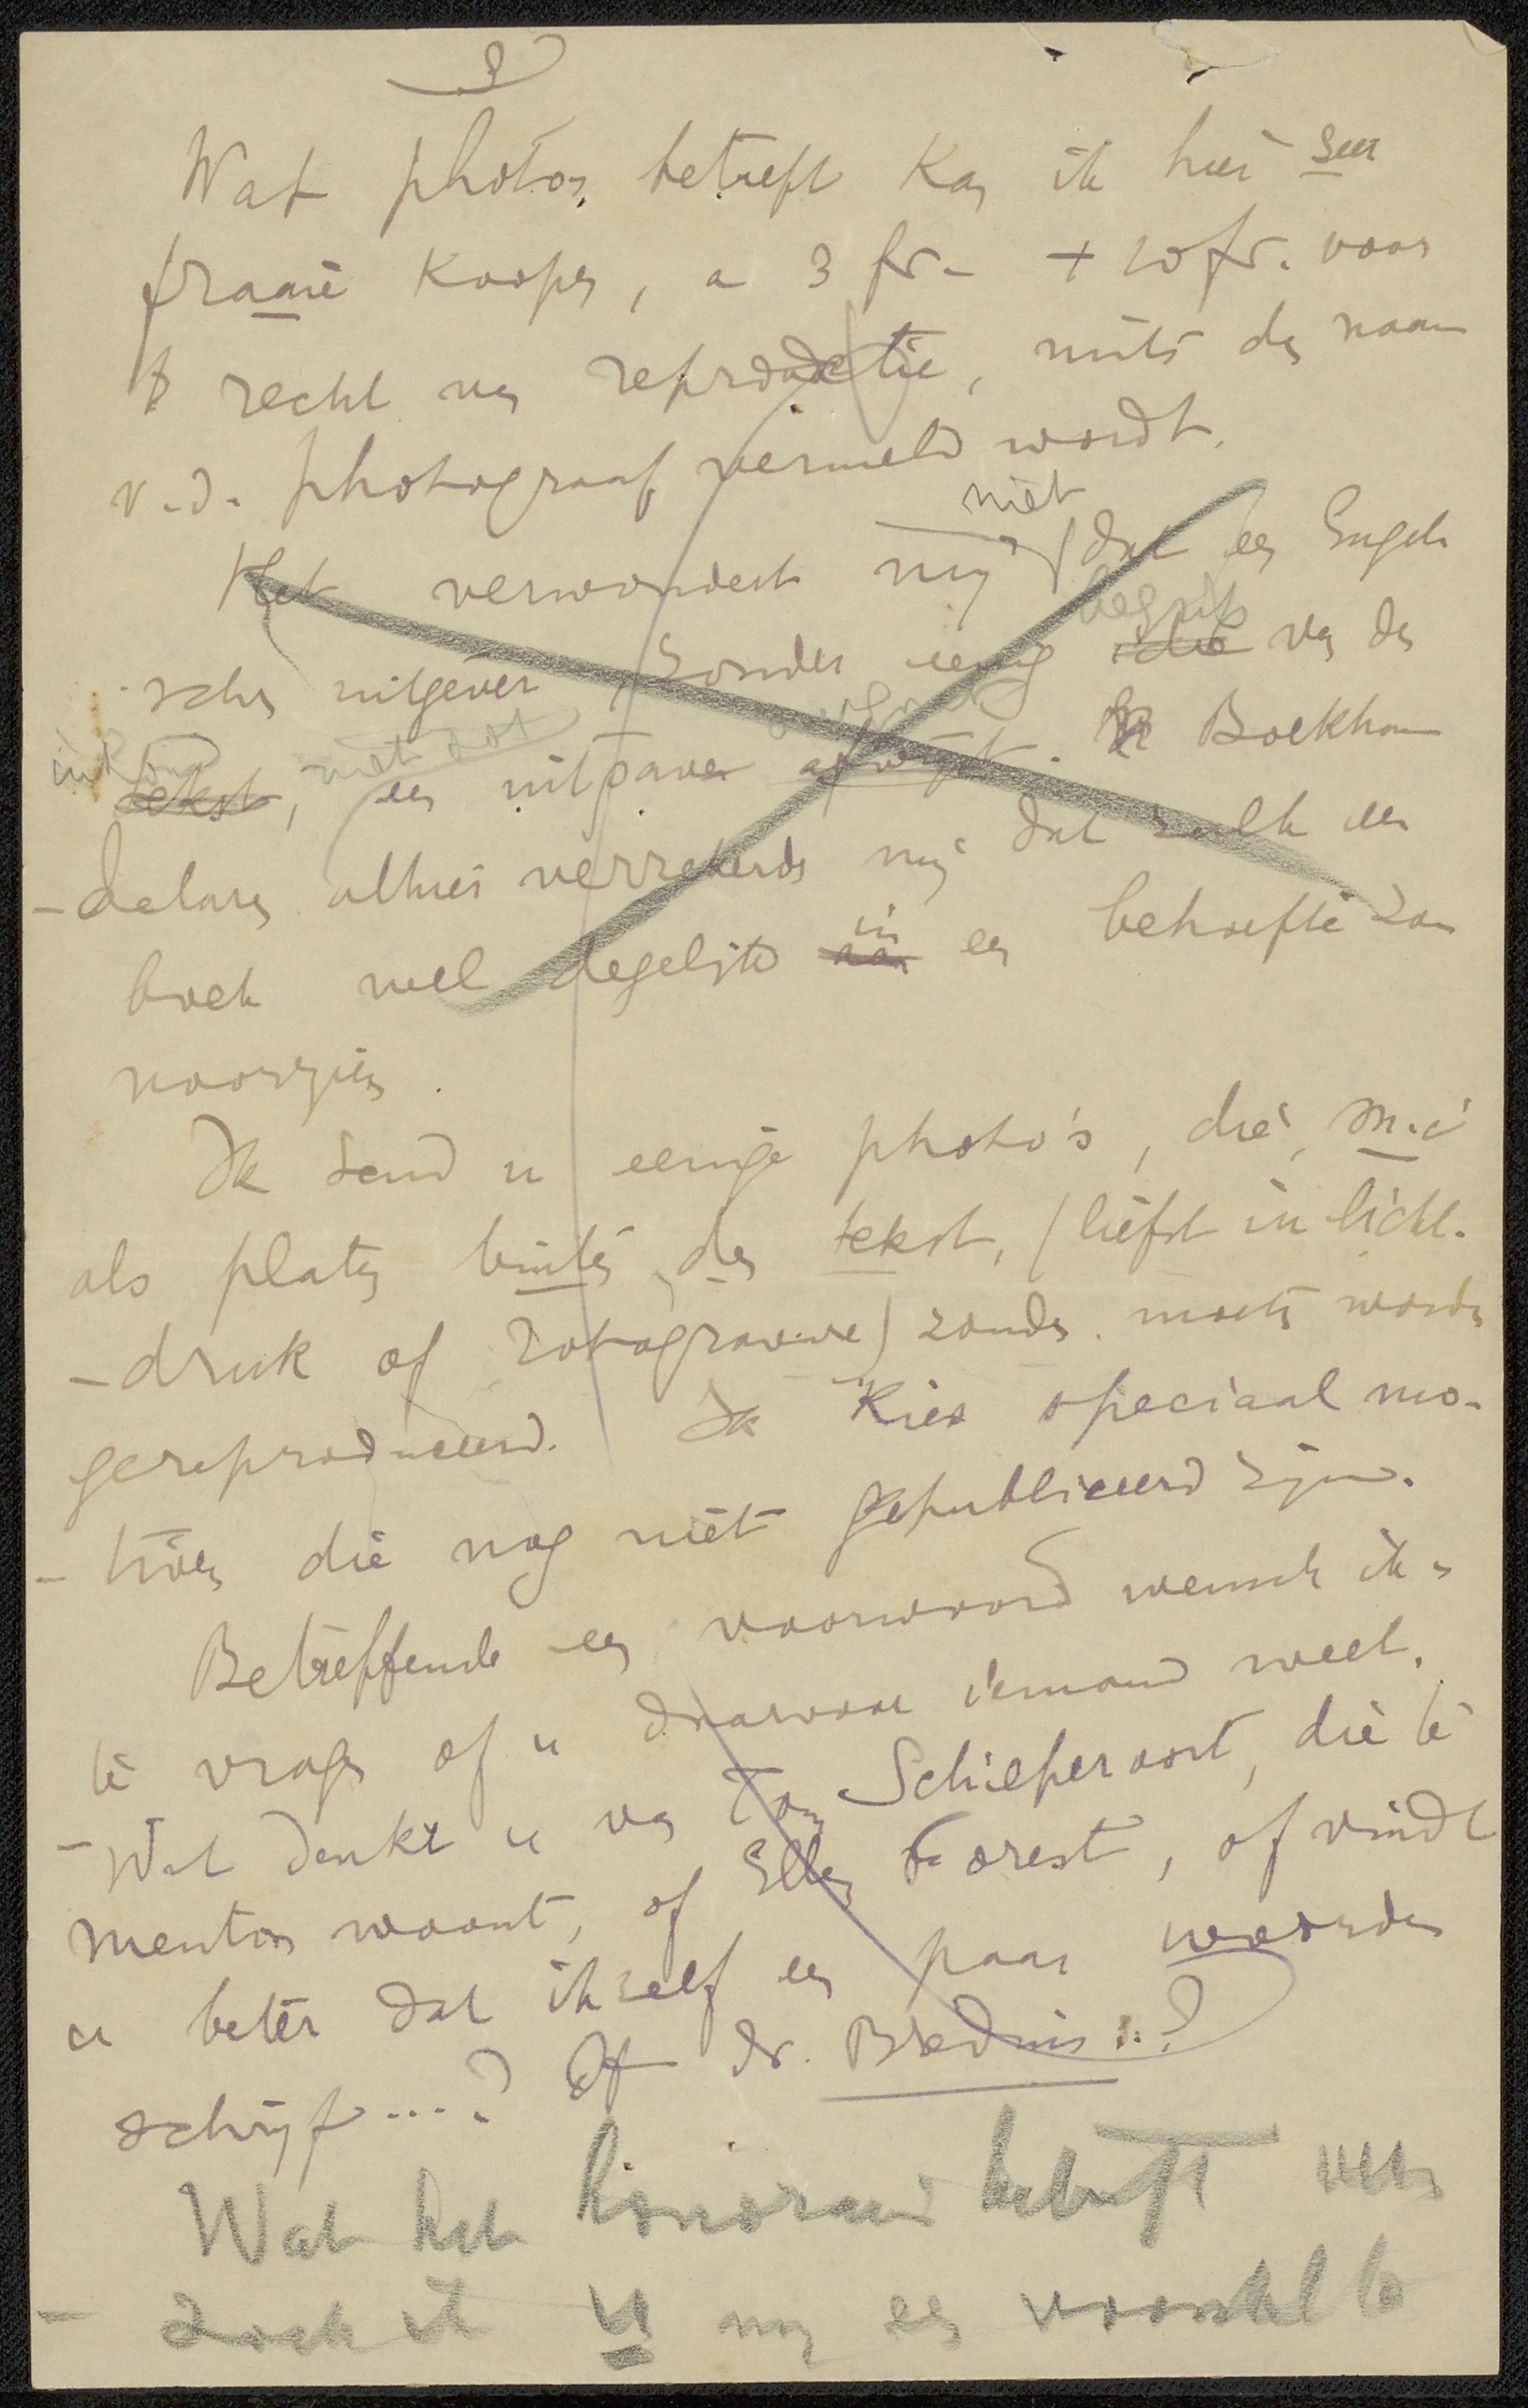 2
Wat photos betreft kan ik hier zeer
fraaie koopen, a 3 fr. + 10 fr. voor
't recht van reproductie, mits de naam
v.d. photograaf vermeld wordt.
niet
Het verwondert mij dat een Engel-
begrip
sche uitgever zonder eenig idee van den
inhoud niet dat
tekst, een uitgave afwijst. Boekhan-
-delaren alhier verzekerde mij dat zulk een
in
boek wel degelijk aan een behoefte zou
voorzien.
Ik zend u eenige photo's, die, m.i
als platen buiten den tekst, (liefst in licht-
-druk of rotogravure) zouden moeten worden
gereproduceerd. Ik kies speciaal mo-
-tieven die nog niet gepubliceerd zijn.
Betreffende een voorwoord wensch ik u
te vragen of u daarvoor iemand weet.
- Wat denkt u van Tom Schilperoort, die te
Menton woont, of Ellen Forest, of vindt
u beter dat ik zelf een paar woorden
schrijf...? Of dr. Bredius..?
Wat het honorarium betreft ver-
- zoek ik u mij een voorstel te